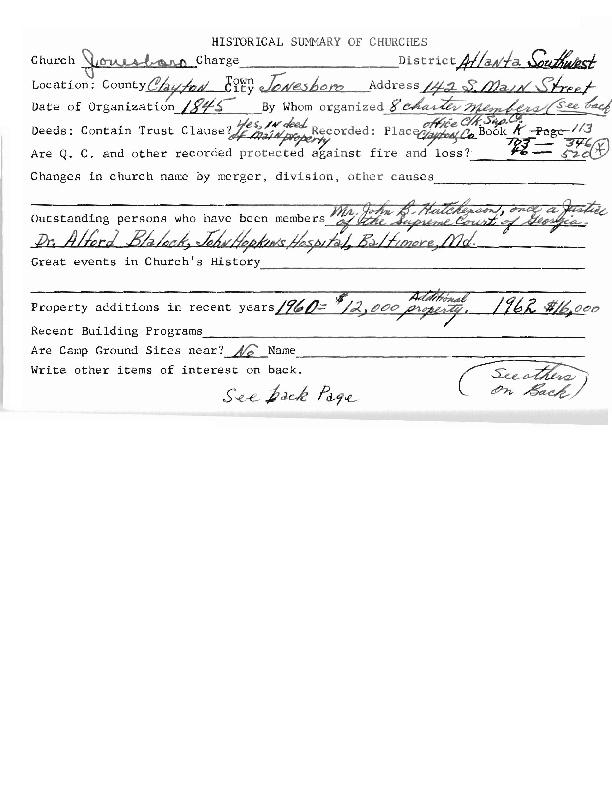 HISTORICAL SUMMARY OF CHURCHES
Church Jonesboro Charge District Atlanta Southwest
Location: County Clayton Town City Jonesboro Address 142 S. Main Street
Date of Organization 1845 By Whom organized 8 charter members (see back
Deeds: Contain Trust Clause? Yes, in deed of main property Recorded: Place office Clk. Sup. Ct. Clayton, Co. Book K Page 113
Are Q. C. and other recorded protected against fire and loss? 103 — 346
46 — 520
Changes in church name by merger, division, other causes
Outstanding persons who have been members Mr. John B. Hutcheson, once a Justice
of the Supreme Court of Georgia.
Dr. Alford Blalock, John Hopkins, Hospital, Baltimore, Md.
Great events in Church's History
Property additions in recent years 1960= $12,000 Additional property. 1962 $16,000
Recent Building Programs
Are Camp Ground Sites near? No Name
Write other items of interest on back.
(See others on Back)
See back Page